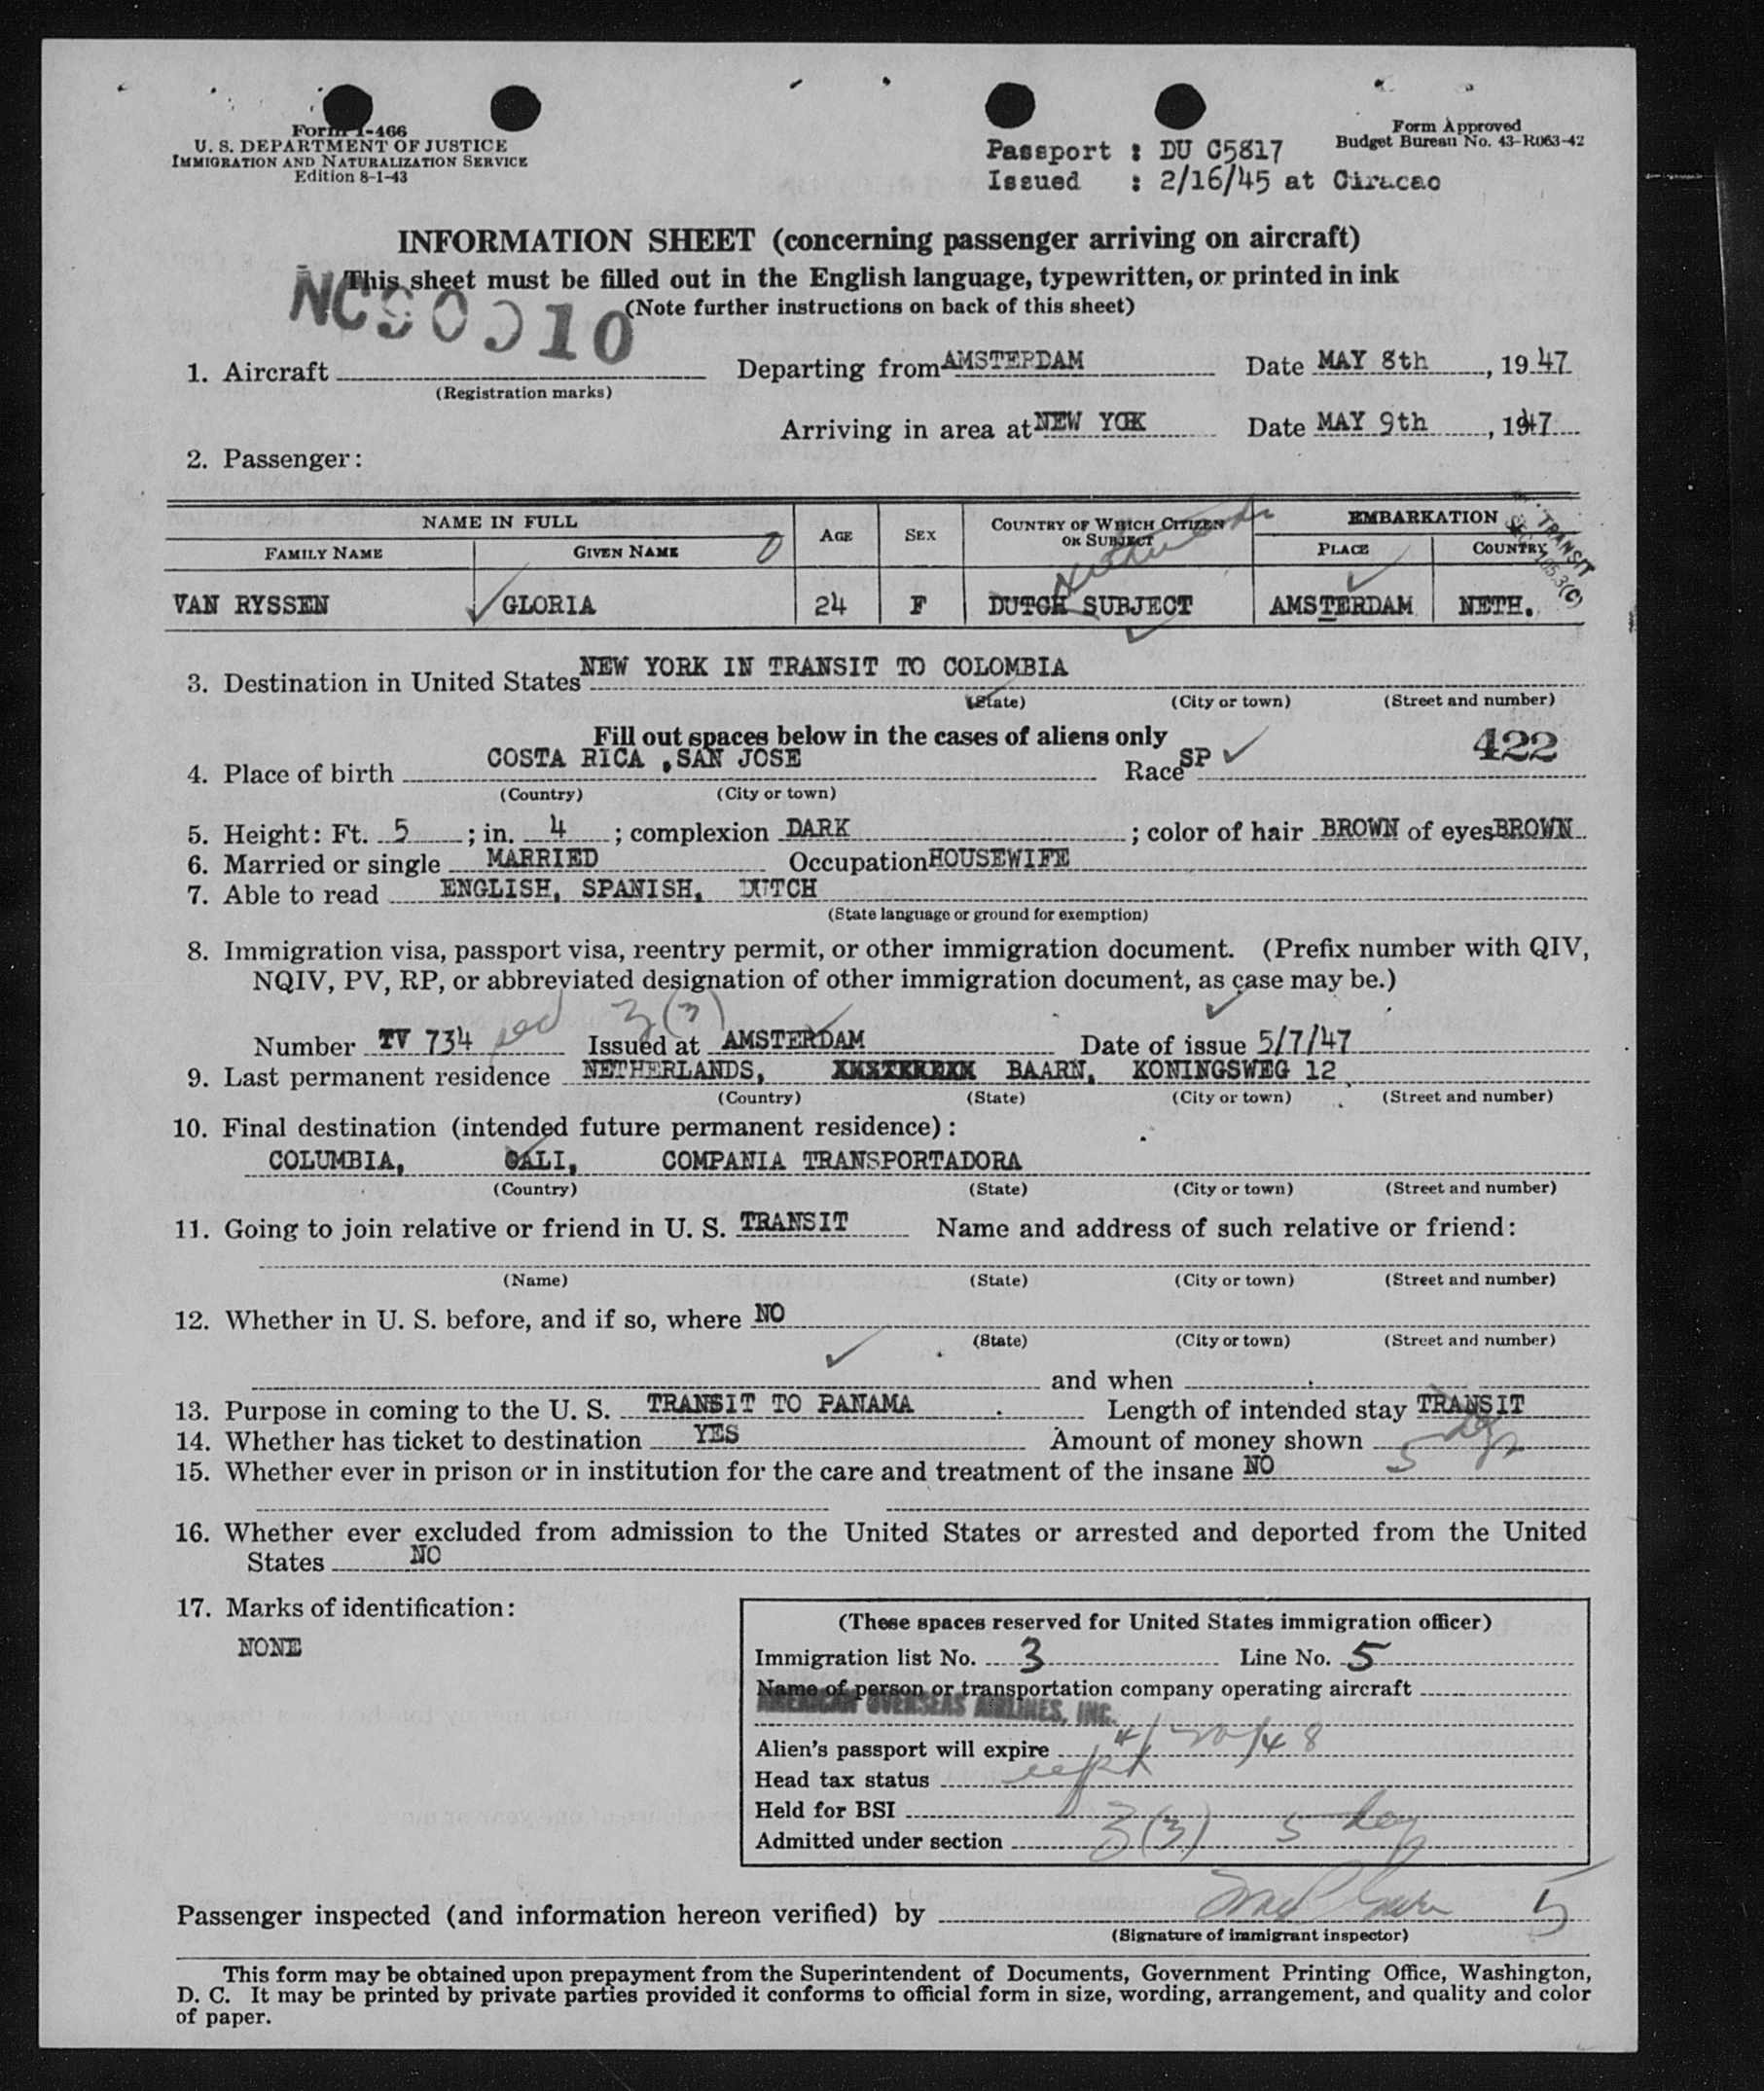 Form I-466
U. S. DEPARTMENT OF JUSTICE
IMMIGRATION AND NATURALIZATION SERVICE
Edition 8-1-43
Form Approved
Budget Bureau No. 43-R063-42
Passport : DU C5817
Issued : 2/16/45 at Ciracao
INFORMATION SHEET (concerning passenger arriving on aircraft)
This sheet must be filled out in the English language, typewritten, or printed in ink
(Note further instructions on back of this sheet)
1. Aircraft Departing from AMSTERDAM Date MAY 8th, 1947
(Registration marks)
Arriving in area at NEW YOK Date MAY 9th, 1947
2. Passenger:
NAME IN FULL AGE SEX COUNTRY OF WHICH CITIZEN OR SUBJECT EMBARKATION
FAMILY NAME GIVEN NAME PLACE COUNTRY
VAN RYSSEN GLORIA 24 F DUTCH SUBJECT AMSTERDAM NETH.
TRANSIT
3. Destination in United States NEW YORK IN TRANSIT TO COLOMBIA
(State) (City or town) (Street and number)
Fill out spaces below in the cases of aliens only
422
4. Place of birth COSTA RICA , SAN JOSE Race SP
(Country) (City or town)
5. Height: Ft. 5 ; in. 4 ; complexion DARK ; color of hair BROWN of eyes BROWN
6. Married or single MARRIED Occupation HOUSEWIFE
7. Able to read ENGLISH, SPANISH, DUTCH
(State language or ground for exemption)
8. Immigration visa, passport visa, reentry permit, or other immigration document. (Prefix number with QIV,
NQIV, PV, RP, or abbreviated designation of other immigration document, as case may be.)
3(3)
Number TV 734 Issued at AMSTERDAM Date of issue 5/7/47
9. Last permanent residence NETHERLANDS, BAARN, KONINGSWEG 12
(Country) (State) (City or town) (Street and number)
10. Final destination (intended future permanent residence):
COLUMBIA, CALI, COMPANIA TRANSPORTADORA
(Country) (State) (City or town) (Street and number)
11. Going to join relative or friend in U. S. TRANSIT Name and address of such relative or friend:
(Name) (State) (City or town) (Street and number)
12. Whether in U. S. before, and if so, where NO
(State) (City or town) (Street and number)
and when
13. Purpose in coming to the U. S. TRANSIT TO PANAMA Length of intended stay TRANSIT
14. Whether has ticket to destination YES Amount of money shown
15. Whether ever in prison or in institution for the care and treatment of the insane NO
16. Whether ever excluded from admission to the United States or arrested and deported from the United
States NO
17. Marks of identification:
NONE
(These spaces reserved for United States immigration officer)
Immigration list No. 3 Line No. 5
Name of person or transportation company operating aircraft
AMERICAN OVERSEAS AIRLINES, INC.
Alien's passport will expire 4/20/48
Head tax status
Held for BSI
Admitted under section 3(3) 5 day
Passenger inspected (and information hereon verified) by 5
(Signature of immigrant inspector)
This form may be obtained upon prepayment from the Superintendent of Documents, Government Printing Office, Washington,
D. C. It may be printed by private parties provided it conforms to official form in size, wording, arrangement, and quality and color
of paper.